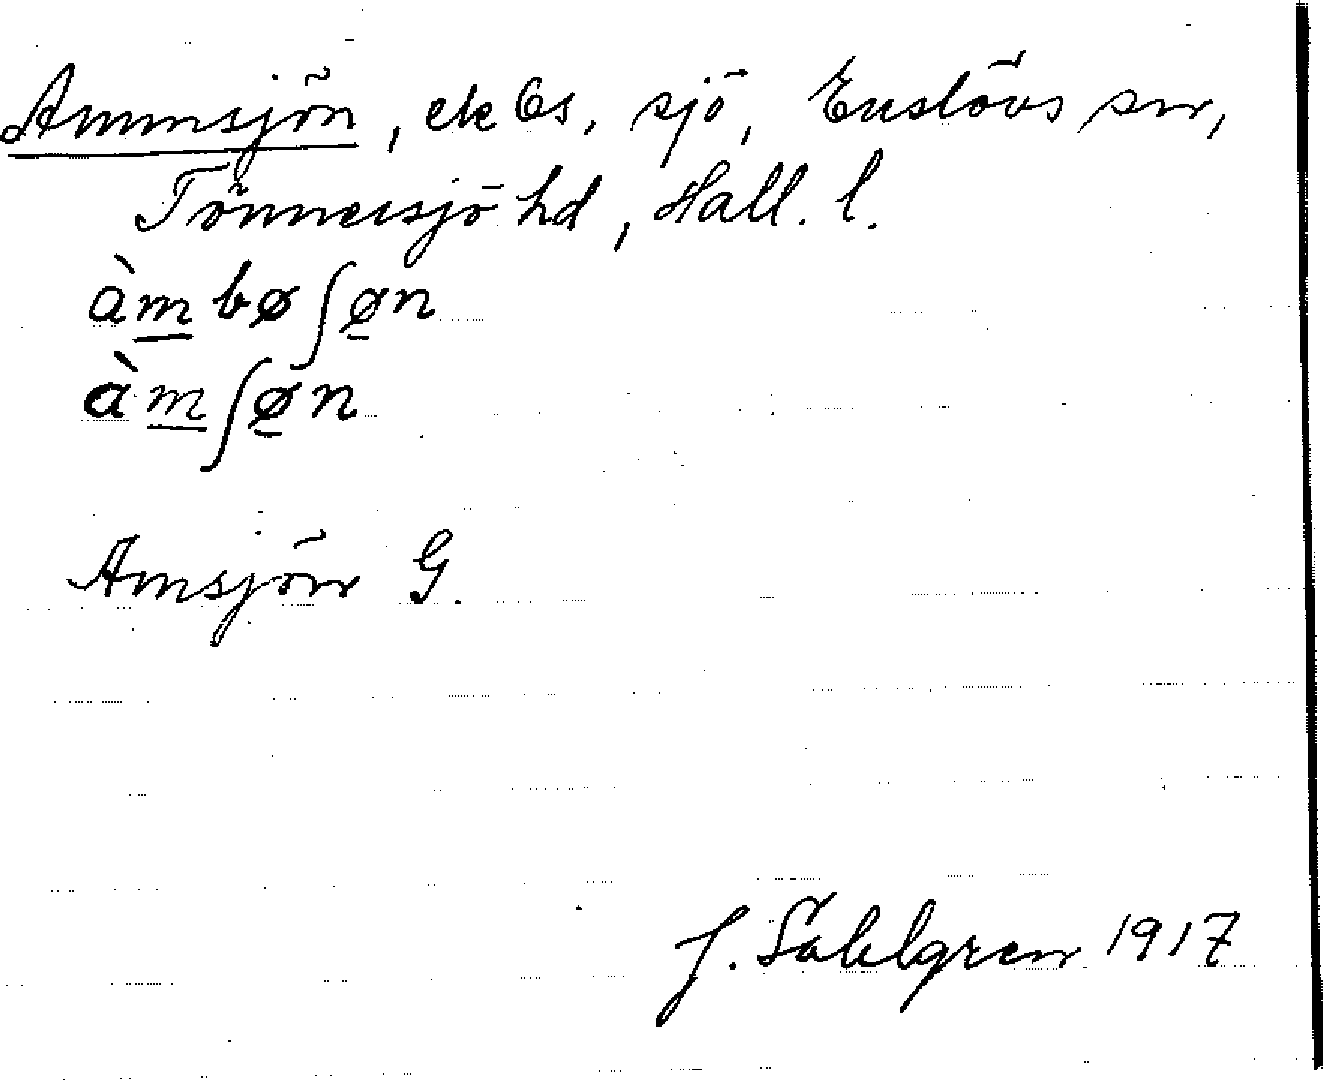 Ammsjön, ek bs, sjö, Enslövs sn,
Tönnersjö hd, Hall. l.
àm bøʃøn
àmʃøn
Amsjön G.
J. Sahlgren 1917